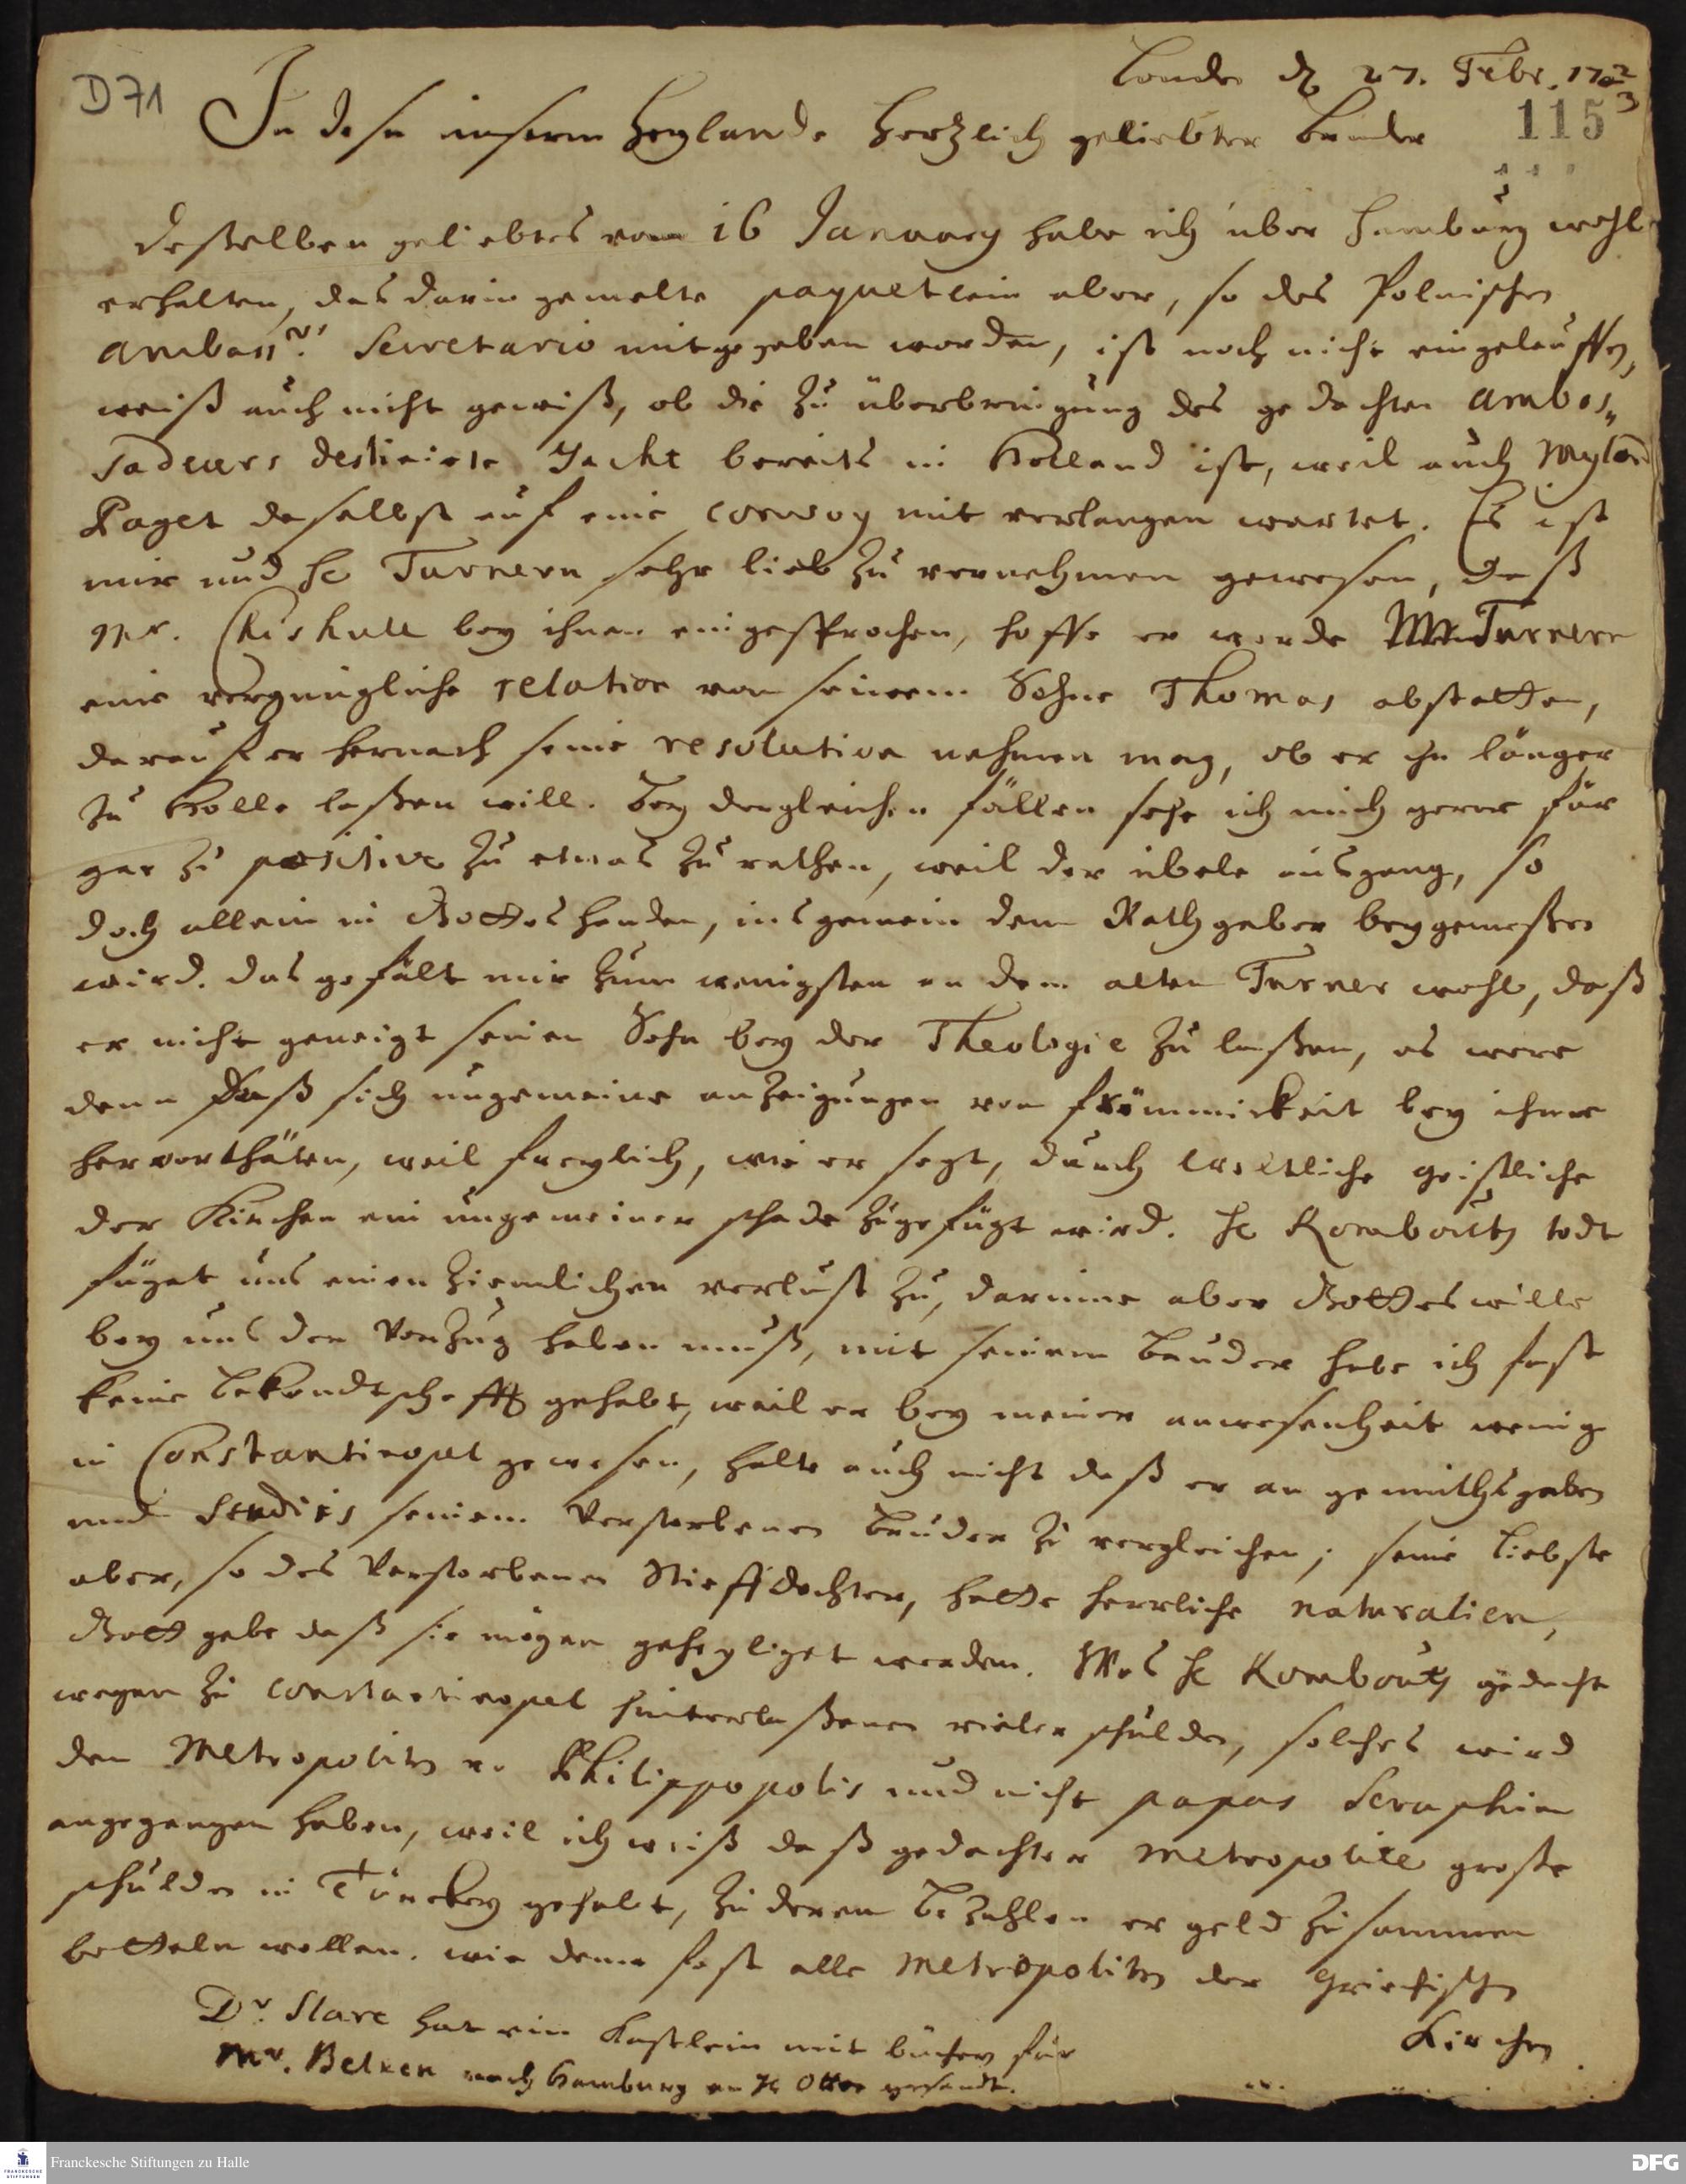 D71
London d. 27. Febr. 170 2/3
115
In dem unserm Heylande Hertzlich geliebter Bruder
deßelben geliebtes vom 16 January habe ich über Hamburg wohl
erhalten, das darin gemelte paquetlein aber, so des Polnischen
Ambass.rs Secretario mitgegeben worden, ist noch nicht eingelauffen,
weiß auch nicht gewiß, ob die zu überbringung des gedachten Ambas„
sadeurs destinirte Jacht bereits in Holland ist, weil auch Mylord
Paget daselbst auf eine convoy mit verlangen wartet. Es ist
mir und H. Turnern sehr lieb zu vernehmen gewesen, daß
Mr. Chishull bey ihnen eingesprochen, hoffe er werde Mr. Turnern
eine vergnügliche relation von seinem Sohne Thomas abstatten,
darauf er hernach seine resolution nehmen mag, ob er ihn länger
zu Halle laßen will. Bey dergleichen fällen sehe ich mich gerne für
gar zu positive zu etwas zu rathen, weil der übele ausgang, so
doch allein in Gottes handen, insgemein dem Rathgeber beygemeßen
wird. das gefält mir zum wenigsten an dem alten Turner wohl, daß
er nicht geneigt seinen Sohn bey der Theologie zu laßen, es were
denn daß sich ungemeine anzeigungen von frömmickeit bey ihme
hervorthäten, weil freylich, wie er sagt, durch weltliche geistliche
der Kirchen ein ungemeiner schade zugefügt wird. H. Rombouts todt
füget uns einen ziemlichen verlust zu, darinne aber Gottes wille
bey uns den Vorzug haben muß, mit seinem Bruder habe ich fast
keine Bekandtschafft gehabt, weil er bey meiner anwesenheit wenig
in Constantinopel gewesen, halte auch nicht daß er an gemüthsgaben
und Studiis seinem Verstorbenen Bruder zu vergleichen; seine Liebste
aber, so des Verstorbenen Stieffdochter, hatte herrliche naturalien,
Gott gebe daß sie mögen geheyliget werden. Was H. Rombouts gedacht
wegen zu Constantinopel hinterlaßenen vielen schulden, solches wird
den Metropoliten v. Philippopolis und nicht papas Seraphim
angegangen haben, weil ich weiß daß gedachter Metropolite große
schulden in Türckey gehabt, zu deren Bezahlen er geld zusammen
betteln wollen. wie denn fast alle Metropoliten der Griechischen
Kirchen
Dr. Slare hat ein Kastlein mit büchern für
Mr. Belken nach Hamburg an H. Otten gesandt.
Franckesche Stiftungen zu Halle
DFG